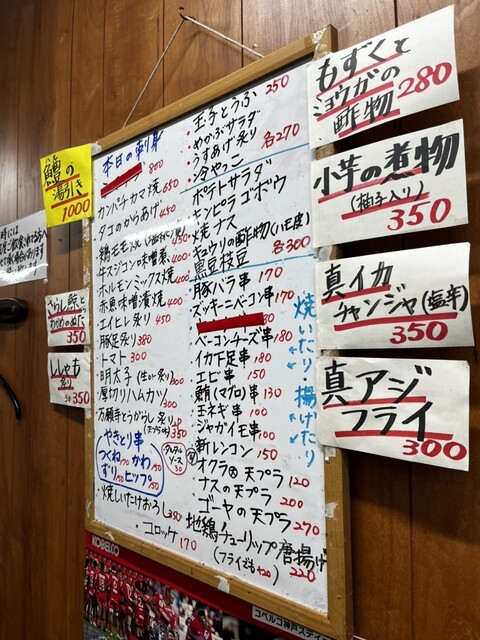 本日の刺身
800
カンパチカマ焼 650
タコのからあげ 450
鶏モモ焼 450
牛スジコンの味噌煮 400
ホルモンミックス焼 400
赤魚味噌漬焼 400
エイヒレ炙り 450
豚足炙り 380
トマト 300
明太子(生or炙り) 300
厚切りハムカツ 300
万願寺とうがらし炙り
(天ぷら) 350
やきとり串
つくね170 かわ150
ずり150 ヒップ150
タルタルソース 50
焼しいたけおろし 350
コロッケ 170
玉子とうふ 250
めかぶサラダ
うすあげ炙り
冷やっこ 各270
ポテトサラダ
キンピラゴボウ
焼ナス
キュウリの酢物(ハモ皮)
黒豆枝豆 各300
豚バラ串 170
ズッキーニベーコン串 170
ベーコンチーズ串 180
イカ下足串 180
エビ串 150
鮪(マグロ)串 130
玉ネギ串 100
ジャガイモ串 100
新レンコン 150
オクラの天プラ 120
ナスの天プラ 200
ゴーヤの天プラ 270
地鶏チューリップ唐揚げ
(フライドも+20) 220
焼いたり 揚げたり
鱧の
湯引き
1000
さらし鯨と
わかめのぬた
350
ししゃも
炙り
350
もずくと
ミョウガの
酢物 280
小芋の煮物
(柚子入り)
350
真イカ
チャンジャ(塩辛)
350
真アジ
フライ
300
KOBELCO
コベルコ神戸スティ